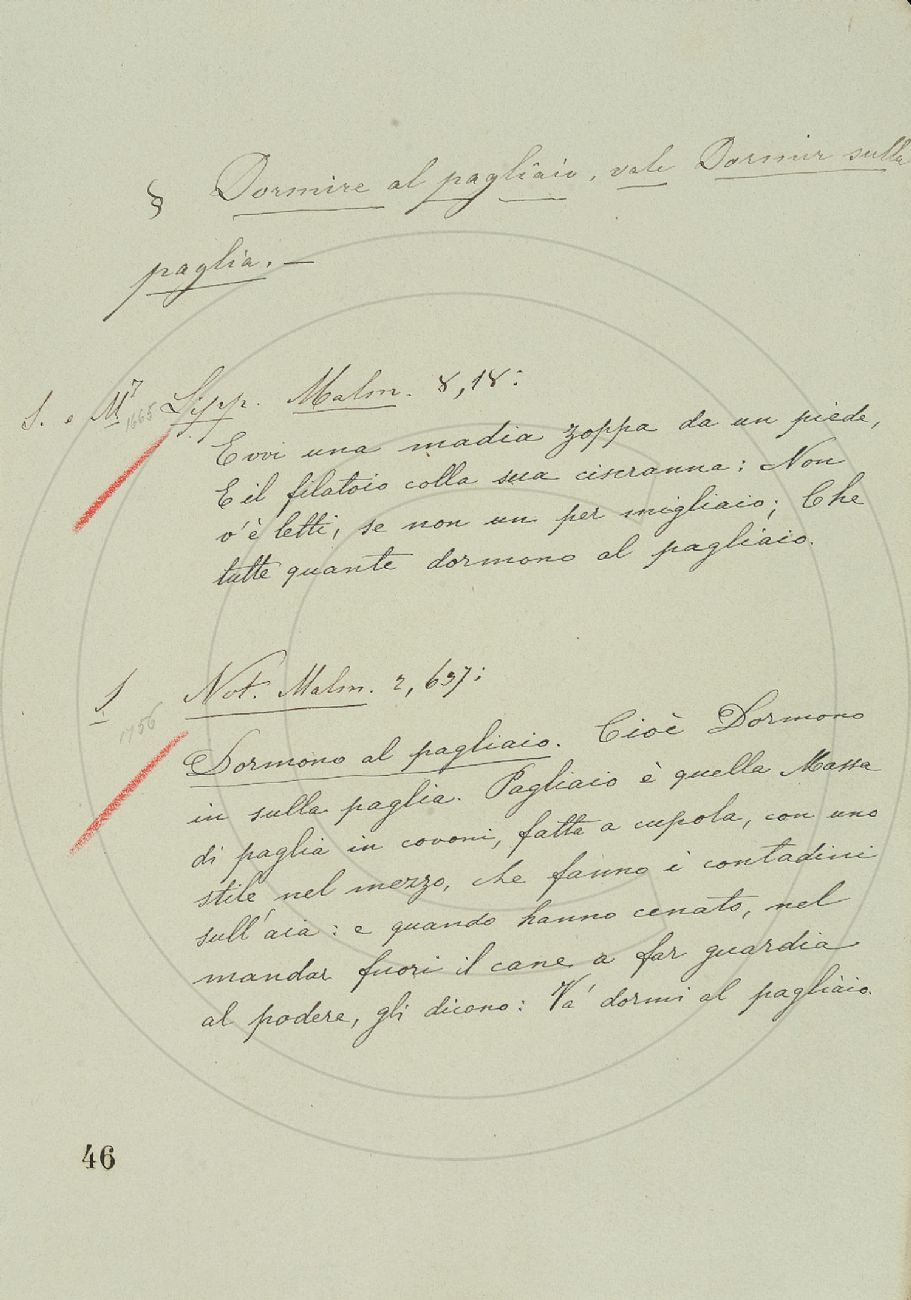 § Dormire al pagliaio, vale Dormir sulla
paglia. —
S. e M.7 1665 Lipp. Malm. 8,18:
E vvi una madia zoppa da un piede,
E il filatoio colla sua ciscranna: Non
v'è letti, se non un per migliaio; Che
tutte quante dormono al pagliaio.
S 1756 Not. Malm. 2, 637:
Dormono al pagliaio. Cioè Dormono
in sulla paglia. Pagliaio è quella Massa
di paglia in covoni, fatta a cupola, con uno
stile nel mezzo, che fanno i contadini
sull'aia: e quando hanno cenato, nel
mandar fuori il cane a far guardia
al podere, gli dicono: Va' dormi al pagliaio.
46